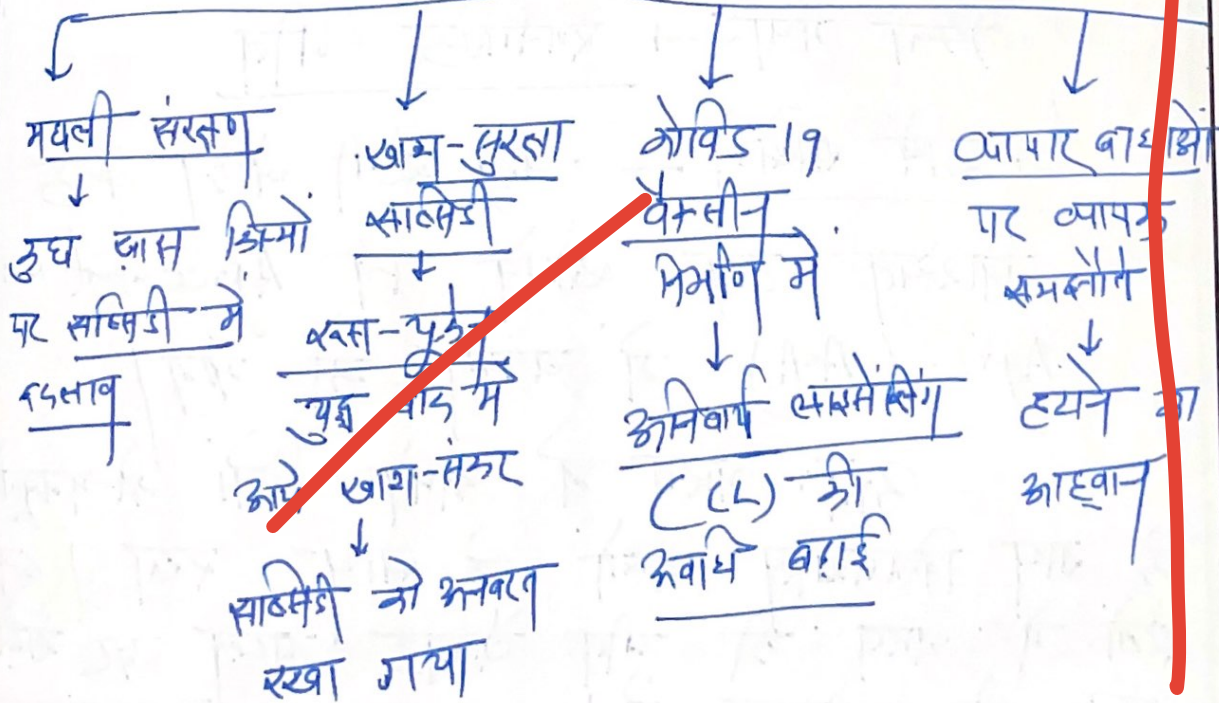 मछली संरक्षण
कुछ ख़ास किस्मों
पर सब्सिडी में
बदलाव
खाद्य-सुरक्षा
सब्सिडी
रूस-यूक्रेन
युद्ध बाद में
आये खाद्य-संकट
सब्सिडी को अनवरत
रखा गया
कोविड 19
वैक्सीन
निर्माण में
अनिवार्य लाइसेंसिंग
(CL) की
अवधि बढ़ाई
व्यापार बाधाओं
पर व्यापक
समझौते
का
आह्वान